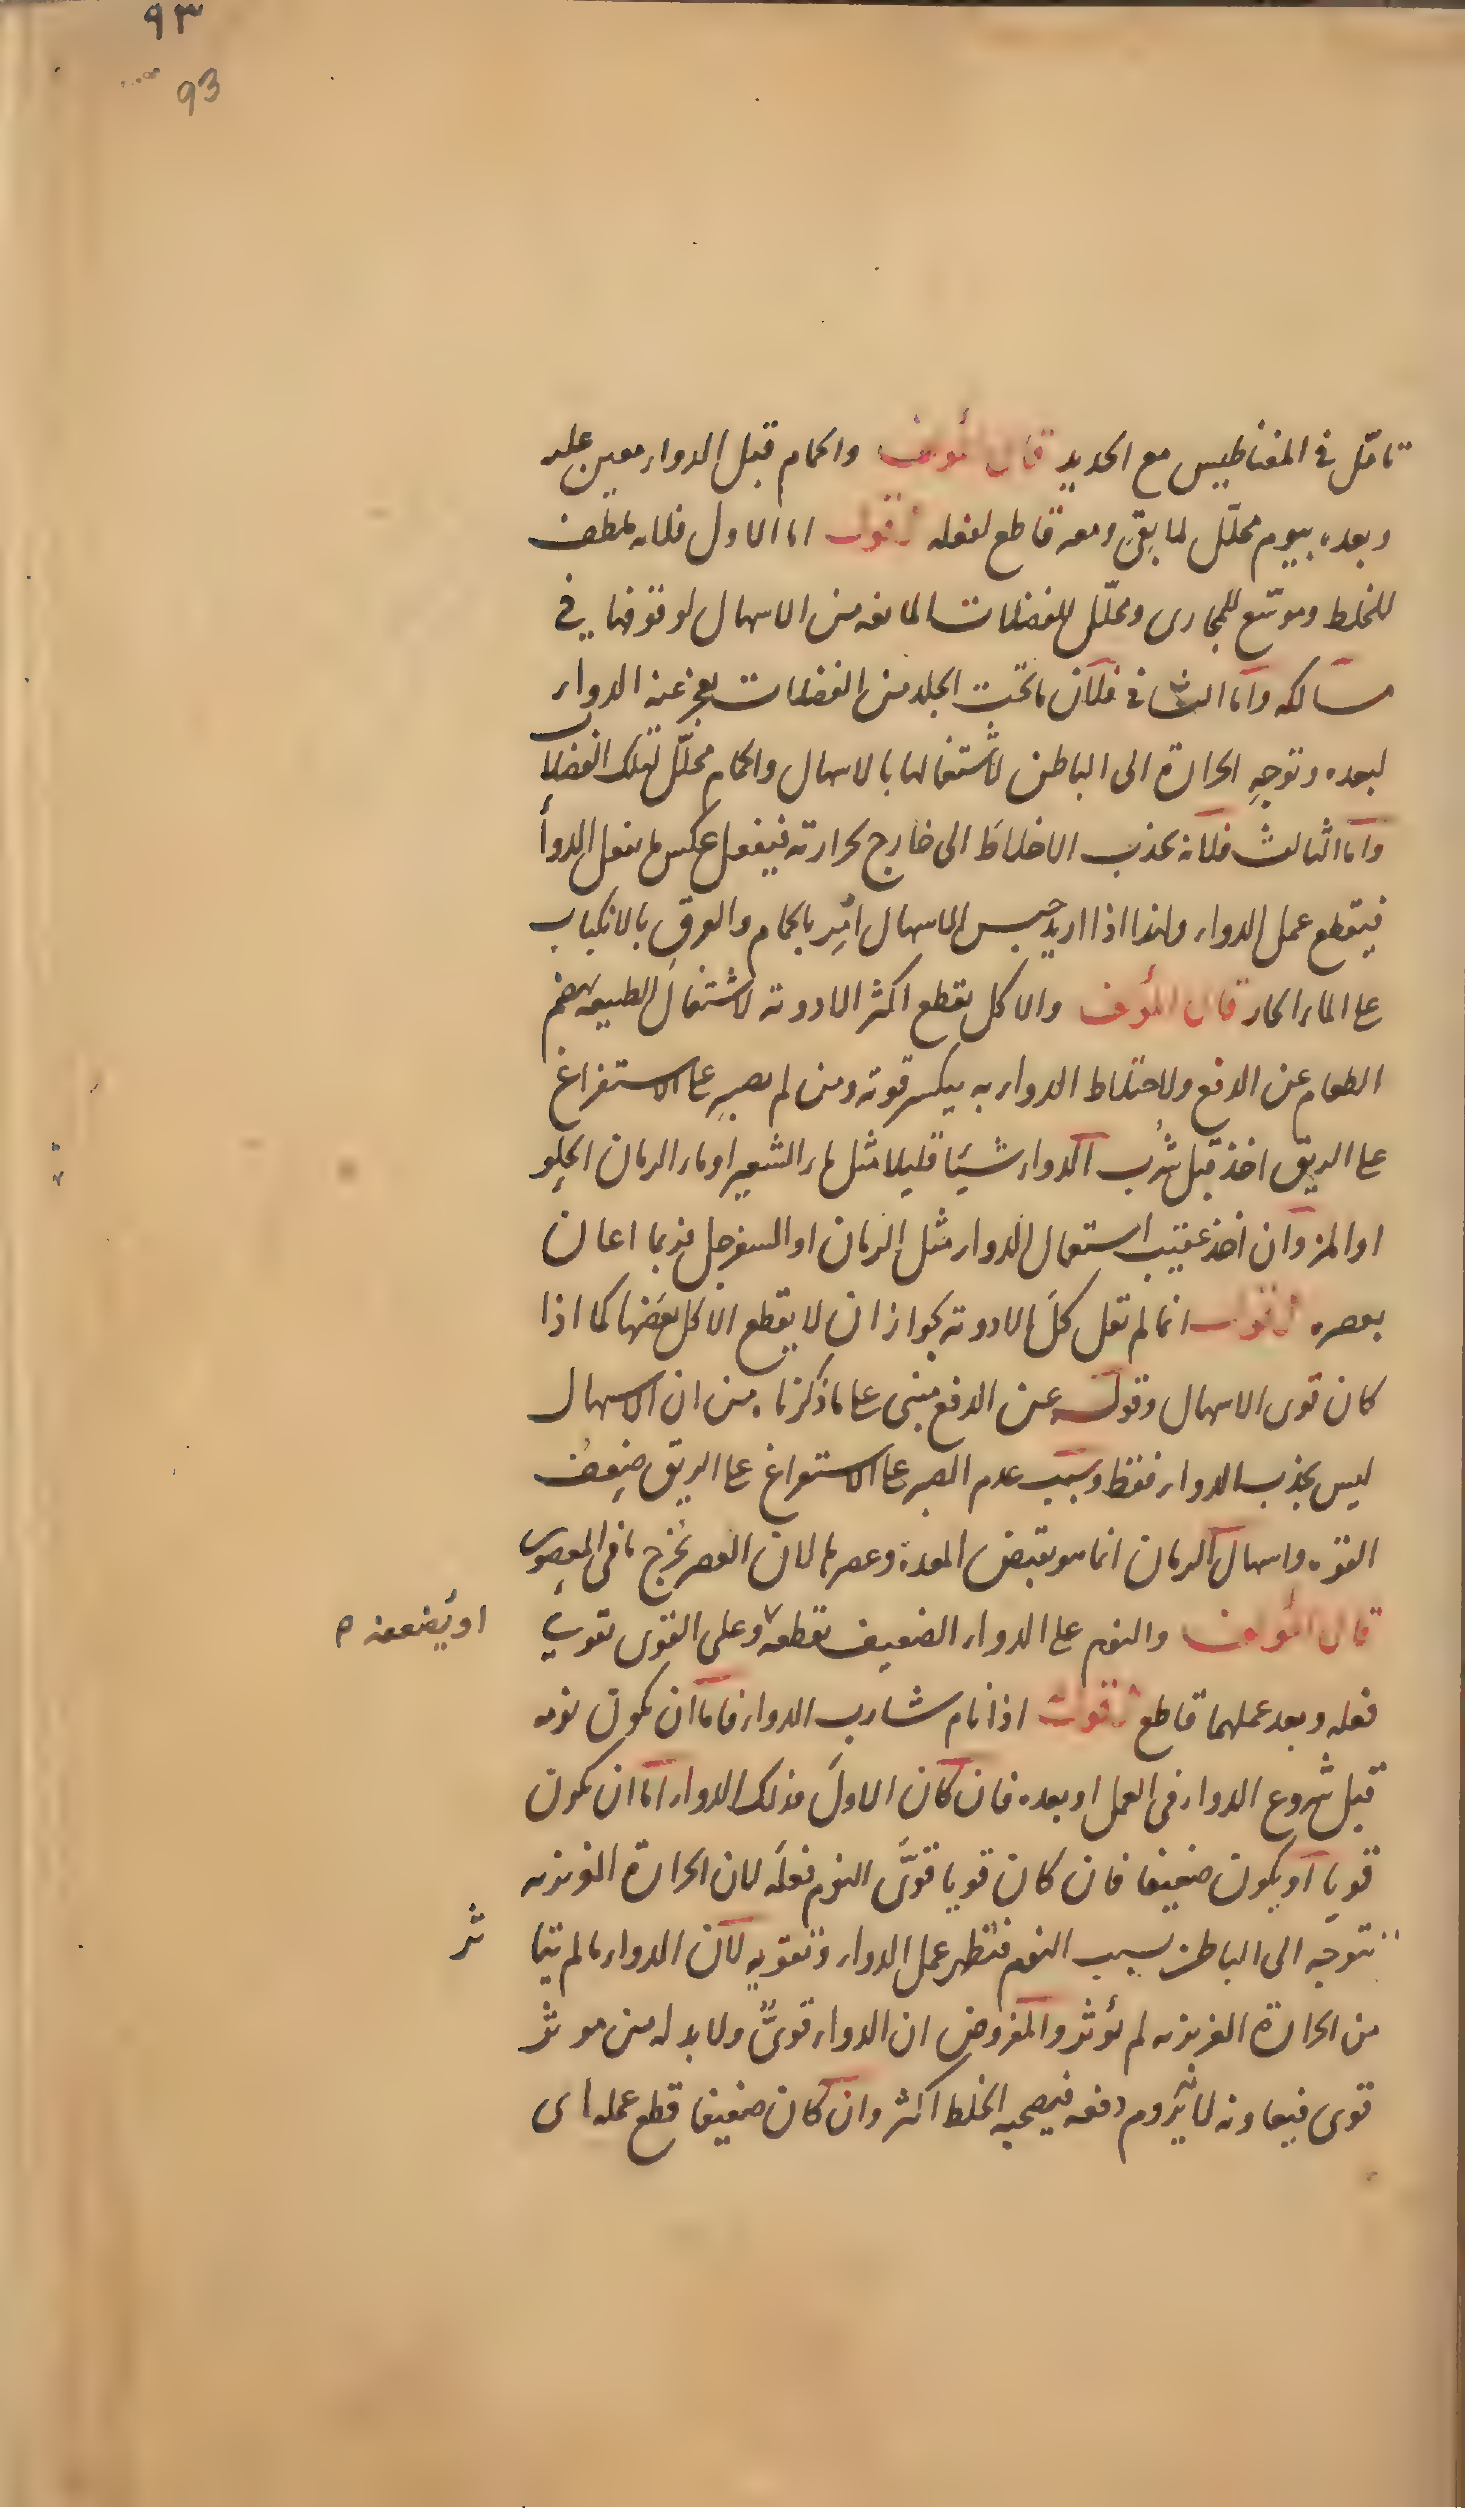 ٩٣
93
تامّل فى المغناطيس مع الحديد قال المؤلف والحمام قبل الدواء معين عليه
وبعده بيوم محلّل لما بقى ومعه قاطع لفعله اقول اما الاول فلانه ملطف
للخلط وموسّع للمجارى ومحلّل للفضلات المانعة من الاسهال لوقوفها فى
مسالكه واما الثانى فلان ما تحت الجلد من الفضلات يعجز عنه الدواء
لبعده وتوجه الحرارة الى الباطن لاشتغالها بالاسهال والحمام محلّل لتلك الفضلات
واما الثالث فلانه يجذب الاخلاط الى خارج بحرارته فيفعل عكس ما يفعل الدواء
فيقطع عمل الدواء ولهذا اذا اريد حبس الاسهال امر بالحمام والعرق بالانكباب
على الماء الحار قال المؤلف والاكل يقطع اكثر الادوية لاشتغال الطبيعة بهضم
الطعام عن الدفع ولاختلاط الدواء به فيكسر قوته ومن لم يصبر على الاستفراغ
على الريق اخذ قبل شرب الدواء شيئا قليلا مثل ماء الشعير او ماء الرمان الحلو
او المز وان اخذ عقيب استعمال الدواء مثل الرمان او السفرجل فربما اعان
بعصره اقول انما لم تقل كل الادوية لجواز ان لا يقطع الاكل بعضها كما اذا
كان قوى الاسهال وقوله عن الدفع مبنى على ما ذكرناه من ان الاسهال
ليس بجذب الدواء فقط وسبب عدم الصبر على الاستفراغ على الريق ضعف
القوة واسهال الرمان انما هو بقبض المعدة وعصرها لان العصر يخرج ما فى المعصور
قال المؤلف والنوم على الدواء الضعيف يقطعه وعلى القوى يقوى
او يضعفه ص
فعله وبعد عملهما قاطع اقول اذا نام شارب الدواء فاما ان يكون نومه
قبل شروع الدواء فى العمل او بعده فان كان الاول فذلك الدواء اما ان يكون
قويا او يكون ضعيفا فان كان قويا قوّى النوم فعله لان الحرارة الغريزية
تتوجّه الى الباطن بسبب النوم فتظهر عمل الدواء وتقويه لان الدواء ما لم يتا ثر
من الحرارة الغريزية لم يؤثر والمفروض ان الدواء قوىّ ولا بد له من موثر
قوى فيعاونه لما يروم دفعه فيصحبه الخلط اكثر وان كان ضعيفا قطع عمله اى